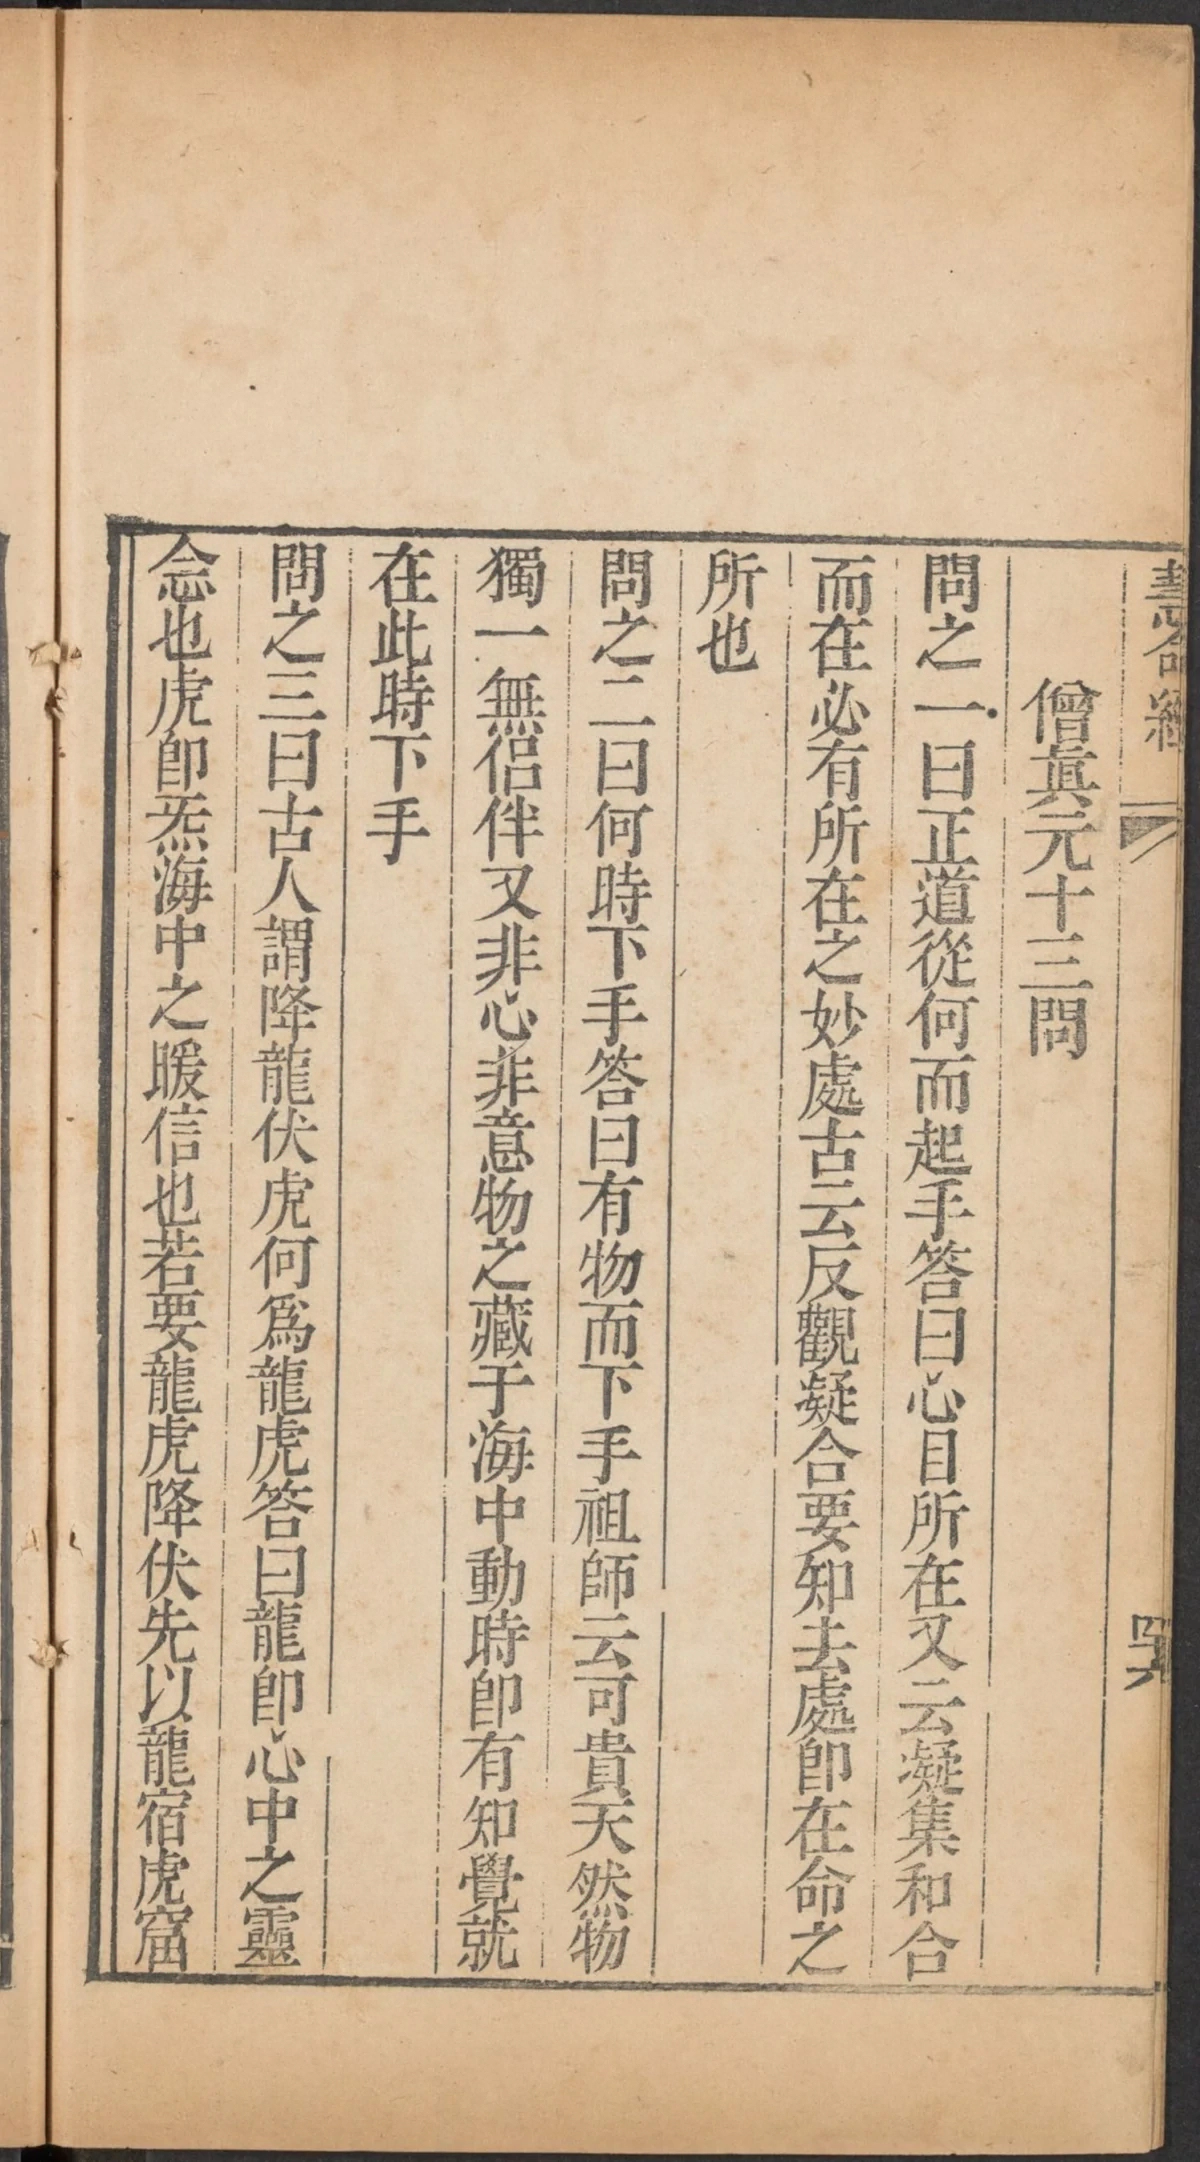 慧命經
僧真元十三問
問之一曰正道從何而起手答曰心目所在又云凝集和合
而在必有所在之妙處古云反觀凝合要知去處卽在命之
所也
問之二曰何時下手答曰有物而下手祖師云可貴天然物
獨一無侶伴又非心非意物之藏于海中動時卽有知覺就
在此時下手
問之三曰古人謂降龍伏虎何為龍虎答曰龍卽心中之靈
念也虎卽炁海中之暖信也若要龍虎降伏先以龍宿虎窟